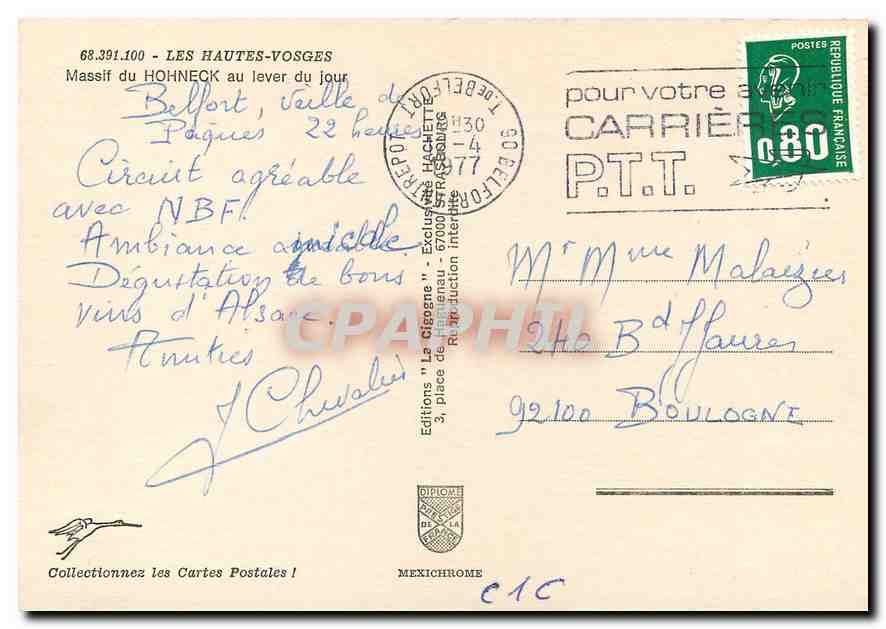 68.391.100 - LES HAUTES-VOSGES
Massif du HOHNECK au lever du jour
Belfort, veille de
Pâques 22 heures
Circuit agréable
avec NBF.
Ambiance amicale.
Dégustation de bons
vins d'Alsace.
Amitiés
J Chevalier
Collectionnez les Cartes Postales !
Editions "La Cigogne" - Exclusivité HACHETTE
3, place de Haguenau - 67000 STRASBOURG
Reproduction interdite
DIPLOME
PRESTIGE
DE LA
FRANCE
MEXICHROME
90 BELFORT ENTREPOT
T. DE BELFORT
H30
-4
1977
pour votre avenir
CARRIÈRES
P.T.T.
POSTES
REPUBLIQUE FRANÇAISE
0,80
Mr Mme Malaizier
240 Bd J Jaures
92100 BOULOGNE
C1C
CPAPHIL